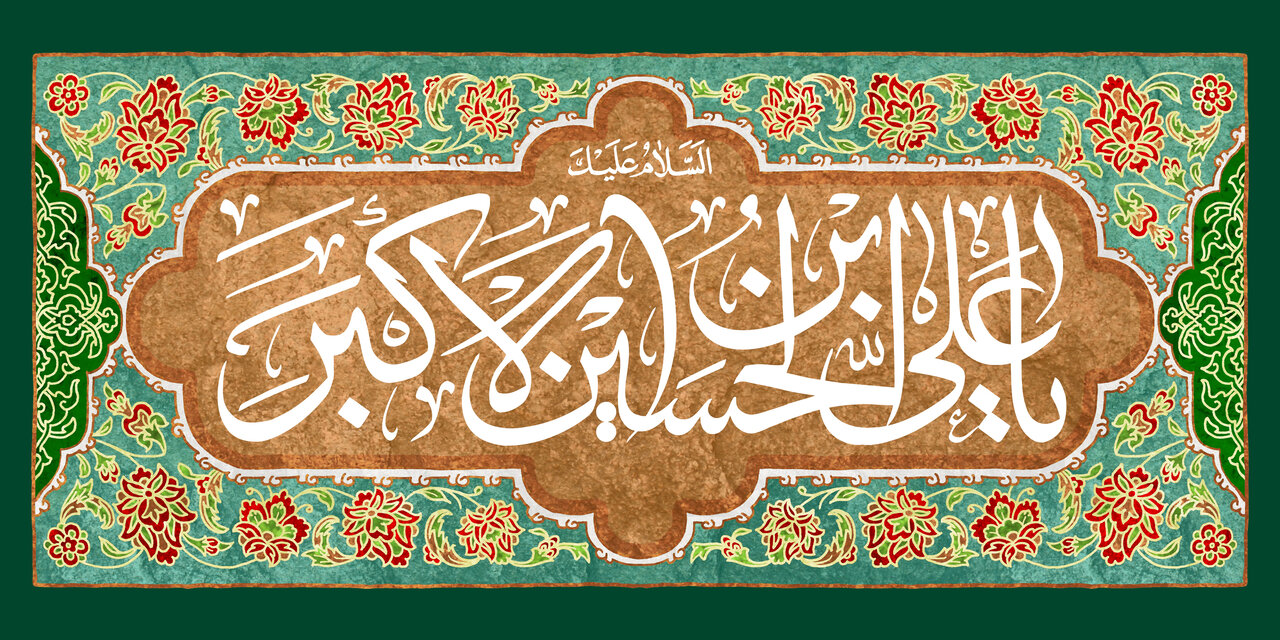 اَلسَّلامُ عَلَیْكَ
یا علی ابن الحسین الاکبر